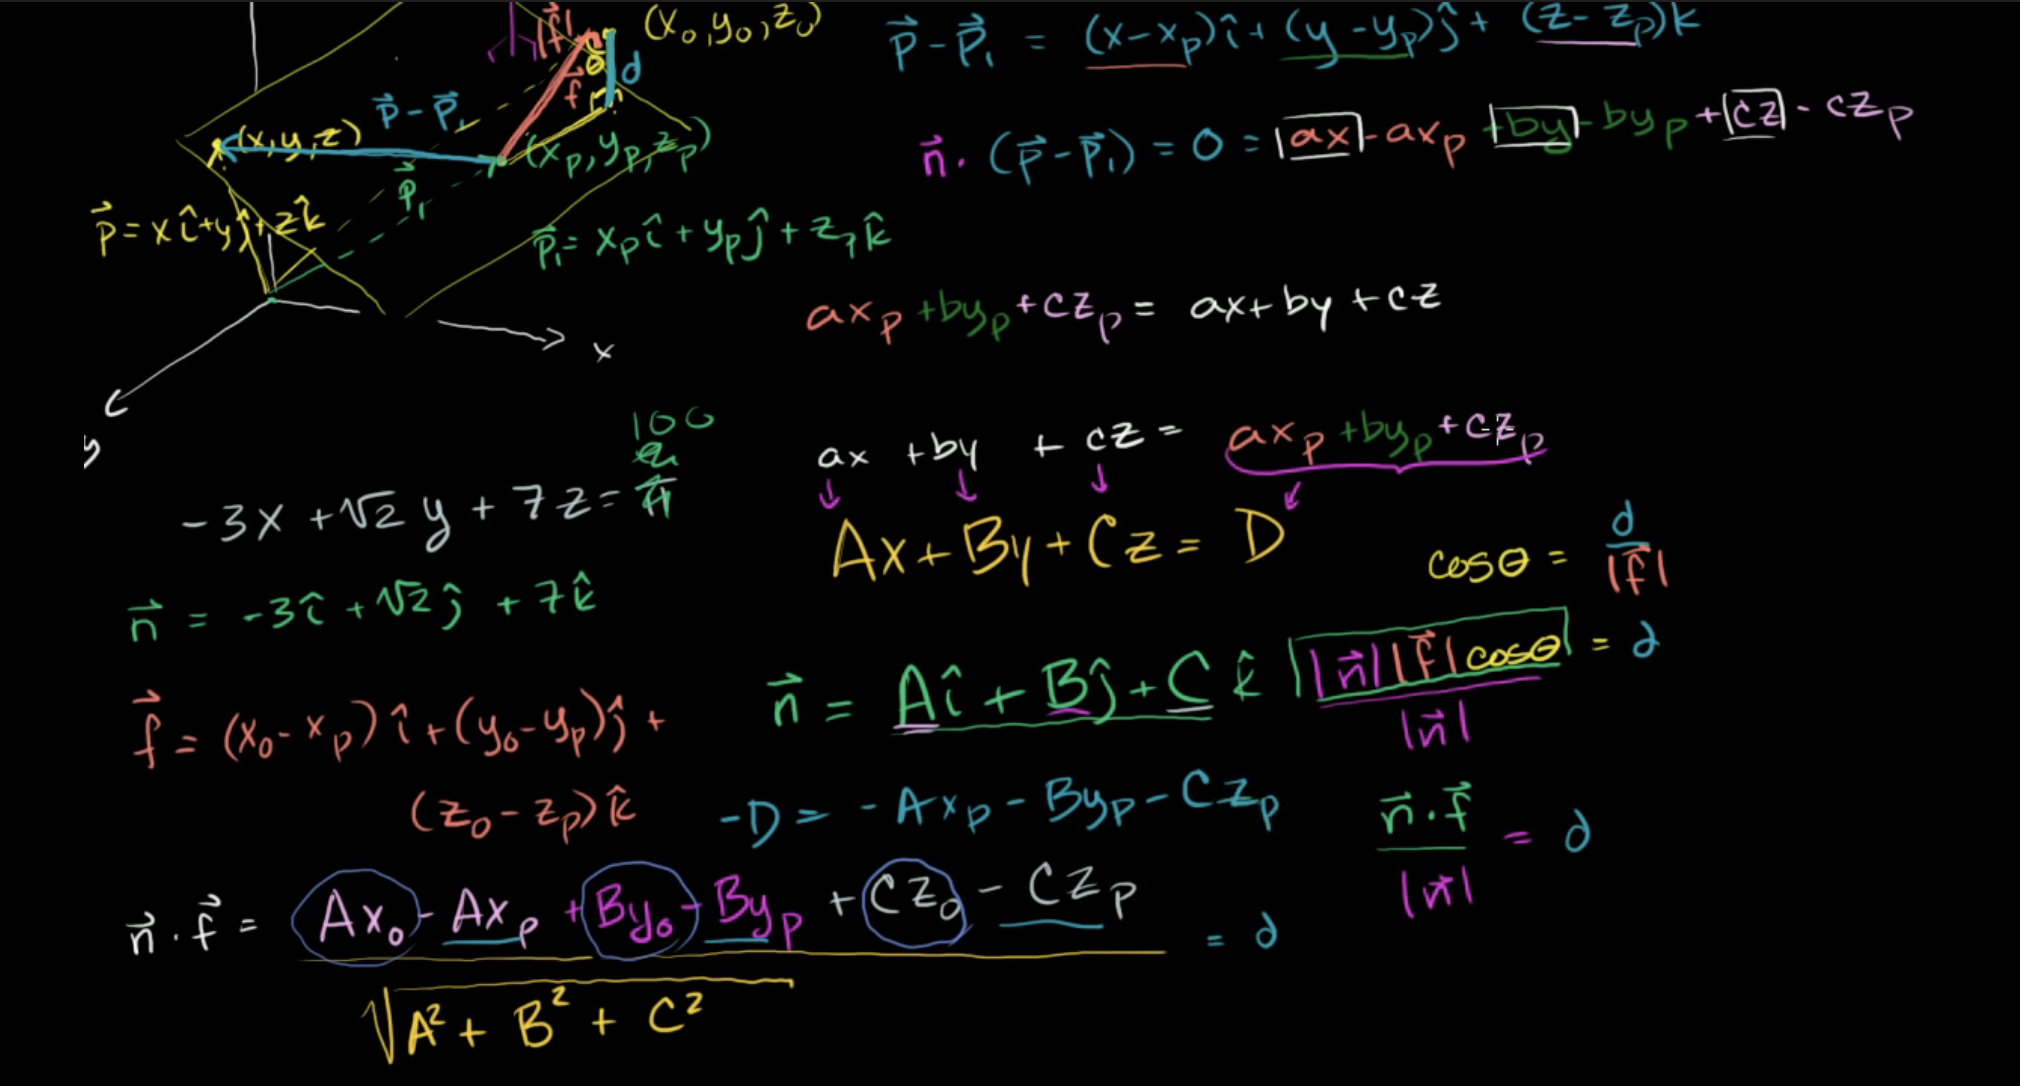 |f⃗|
θ
d
f⃗
(x₀, y₀, z₀)
p⃗ - p⃗₁
(x, y, z)
(xₚ, yₚ, zₚ)
p⃗₁
p⃗ = xî + yĵ + zk̂
p⃗₁ = xₚî + yₚĵ + zₚk̂
x
y
p⃗ - p⃗₁ = (x - xₚ)î + (y - yₚ)ĵ + (z - zₚ)k
n⃗ · (p⃗ - p⃗₁) = 0 = ax - axₚ + by - byₚ + cz - czₚ
axₚ + byₚ + czₚ = ax + by + cz
ax + by + cz = axₚ + byₚ + czₚ
Ax + By + Cz = D
100
-3x + √2 y + 7z = π
n⃗ = -3î + √2ĵ + 7k̂
cosθ = d / |f⃗|
n⃗ = Aî + Bĵ + Ck̂
|n⃗||f⃗|cosθ / |n⃗| = d
f⃗ = (x₀ - xₚ)î + (y₀ - yₚ)ĵ +
(z₀ - zₚ)k̂
-D = -Axₚ - Byₚ - Czₚ
n⃗ · f⃗ / |n⃗| = d
n⃗ · f⃗ = Ax₀ - Axₚ + By₀ - Byₚ + Cz₀ - Czₚ = d
√A² + B² + C²